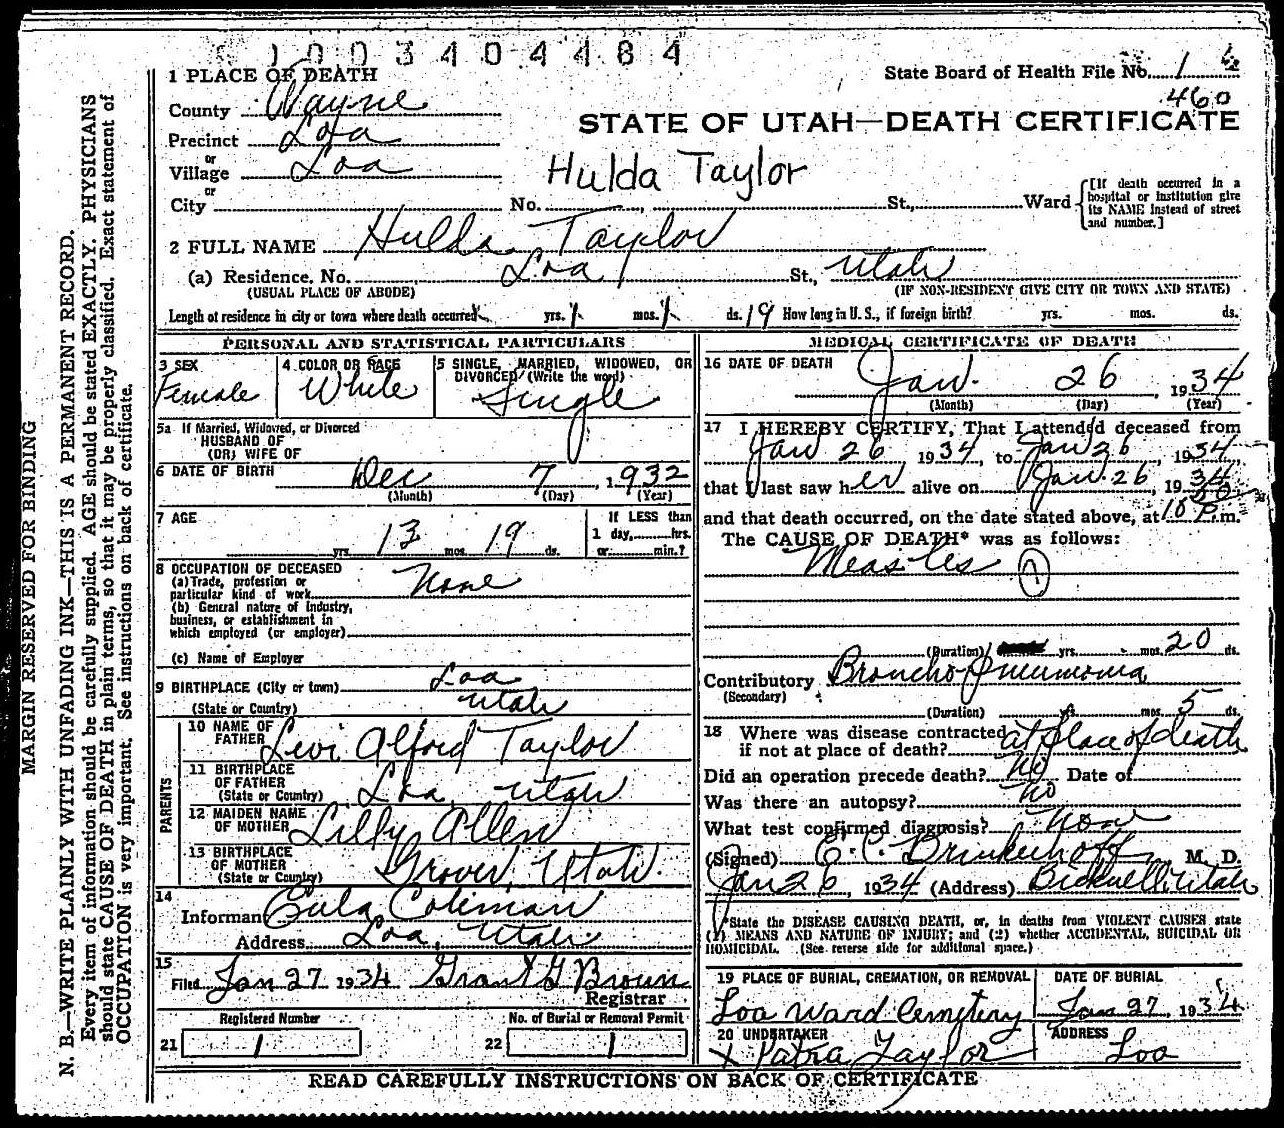 1003404484
1 PLACE OF DEATH
State Board of Health File No. 1
460
County Wayne
STATE OF UTAH—DEATH CERTIFICATE
Precinct Loa
or
Village Loa
Hulda Taylor
or
City No. , St., Ward
[If death occurred in a
hospital or institution give
its NAME instead of street
and number.]
2 FULL NAME Hulda Taylor
(a) Residence. No. Loa St., Utah
(USUAL PLACE OF ABODE) (IF NON-RESIDENT GIVE CITY OR TOWN AND STATE)
Length of residence in city or town where death occurred yrs. 1 mos. 1 ds. 19 How long in U. S., if foreign birth? yrs. mos. ds.
PERSONAL AND STATISTICAL PARTICULARS
3 SEX
Female
4 COLOR OR RACE
White
5 SINGLE, MARRIED, WIDOWED, OR
DIVORCED (Write the word)
Single
5a If Married, Widowed, or Divorced
HUSBAND OF
(OR) WIFE OF
6 DATE OF BIRTH Dec 7, 1932
(Month) (Day) (Year)
7 AGE
yrs. 13 mos. 19 ds.
If LESS than
1 day, hrs.
or min.?
8 OCCUPATION OF DECEASED
(a) Trade, profession or
particular kind of work None
(b) General nature of industry,
business, or establishment in
which employed (or employer)
(c) Name of Employer
9 BIRTHPLACE (City or town) Loa
(State or Country) Utah
PARENTS
10 NAME OF
FATHER Levi Alford Taylor
11 BIRTHPLACE
OF FATHER
(State or Country) Loa, Utah
12 MAIDEN NAME
OF MOTHER Lilly Allen
13 BIRTHPLACE
OF MOTHER
(State or Country) Grover, Utah.
14
Informant Eula Coleman
Address Loa, Utah
15
Filed Jan 27 1934 Grant G Brown
Registrar
Registered Number No. of Burial or Removal Permit
21 1 22 1
MEDICAL CERTIFICATE OF DEATH
16 DATE OF DEATH
Jan. 26, 1934
(Month) (Day) (Year)
17 I HEREBY CERTIFY, That I attended deceased from
Jan 26 1934, to Jan 26, 1934.
that I last saw her alive on Jan. 26, 1934
and that death occurred, on the date stated above, at 10 P.m.
The CAUSE OF DEATH* was as follows:
Measles 7
(Duration) yrs. mos. 20 ds.
Contributory Bronchopneumonia
(Secondary)
(Duration) yrs. mos. 5 ds.
18 Where was disease contracted
if not at place of death? at place of death
Did an operation precede death? No Date of
Was there an autopsy? No
What test confirmed diagnosis? None
(Signed) E. C. Brinkerhoff, M. D.
Jan 26, 1934 (Address) Bicknell, Utah
*State the DISEASE CAUSING DEATH, or, in deaths from VIOLENT CAUSES state
(1) MEANS AND NATURE OF INJURY; and (2) whether ACCIDENTAL, SUICIDAL OR
HOMICIDAL. (See reverse side for additional space.)
19 PLACE OF BURIAL, CREMATION, OR REMOVAL
Loa Ward Cemetery
DATE OF BURIAL
Jan 27, 1934
20 UNDERTAKER
x Patra Taylor
ADDRESS
Loa
READ CAREFULLY INSTRUCTIONS ON BACK OF CERTIFICATE
MARGIN RESERVED FOR BINDING
N. B.—WRITE PLAINLY WITH UNFADING INK—THIS IS A PERMANENT RECORD.
Every item of information should be carefully supplied. AGE should be stated EXACTLY. PHYSICIANS
should state CAUSE OF DEATH in plain terms, so that it may be properly classified. Exact statement of
OCCUPATION is very important. See instructions on back of certificate.